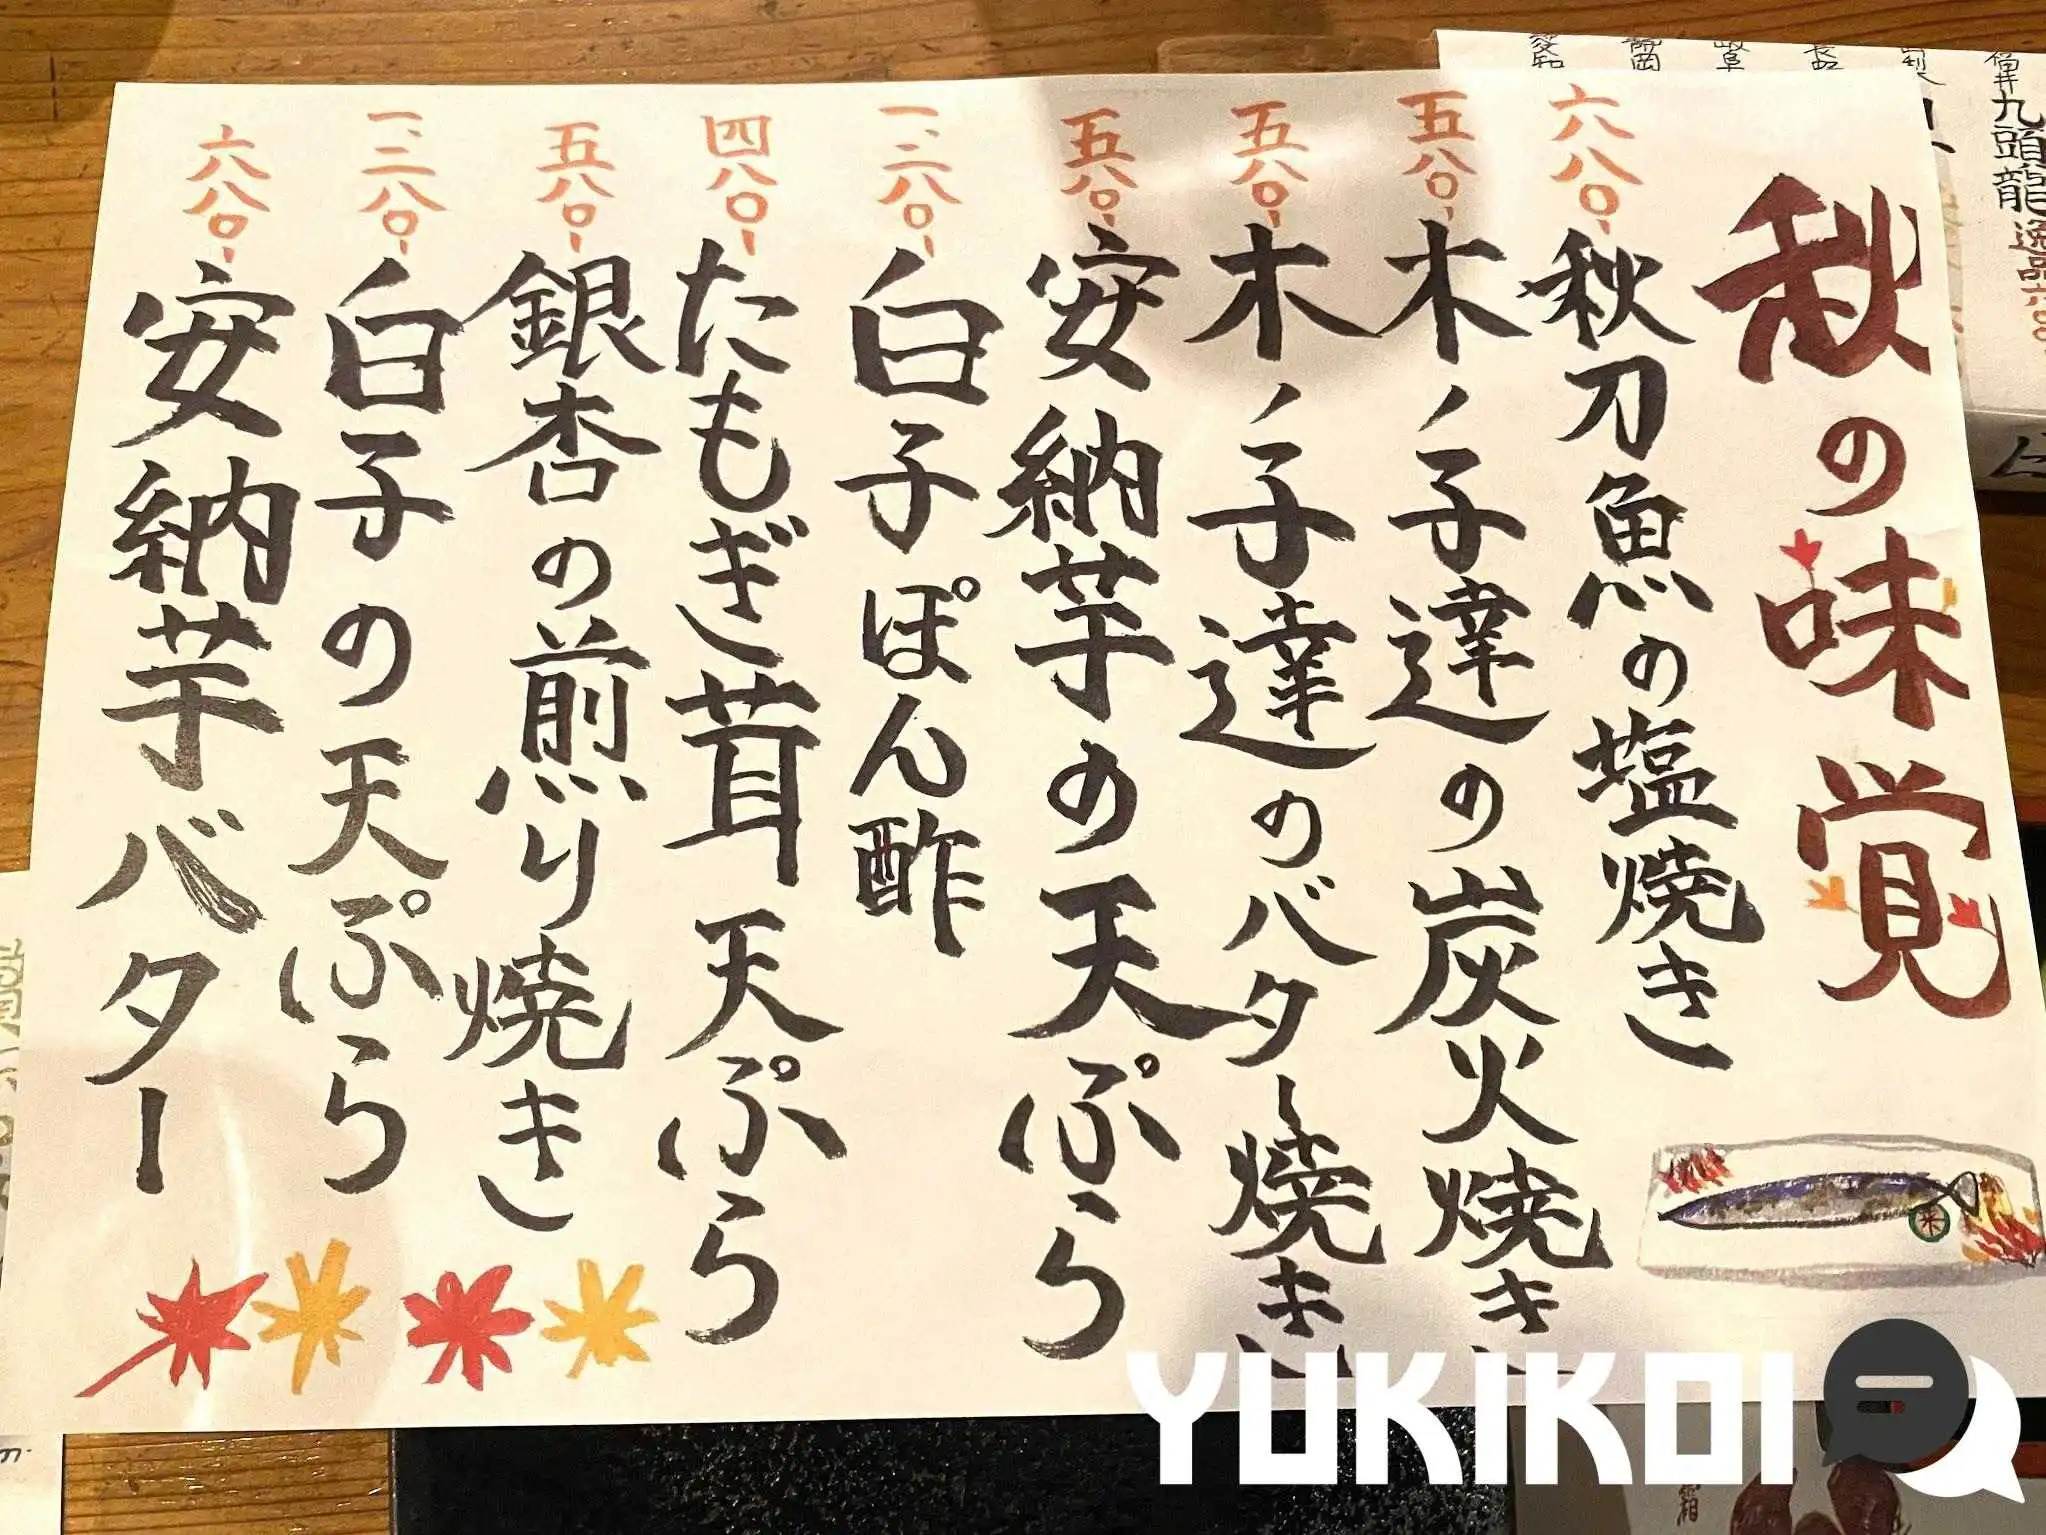 秋の味覚
六八〇-
秋刀魚の塩焼き
五八〇-
木ノ子達の炭火焼き
五八〇-
木ノ子達のバター焼き
五八〇-
安納芋の天ぷら
一、二八〇-
白子ぽん酢
四八〇-
たもぎ茸天ぷら
五八〇-
銀杏の煎り焼き
一、二八〇-
白子の天ぷら
六八〇-
安納芋バター
福井
九頭龍
逸品
六〇〇
YUKIKOI